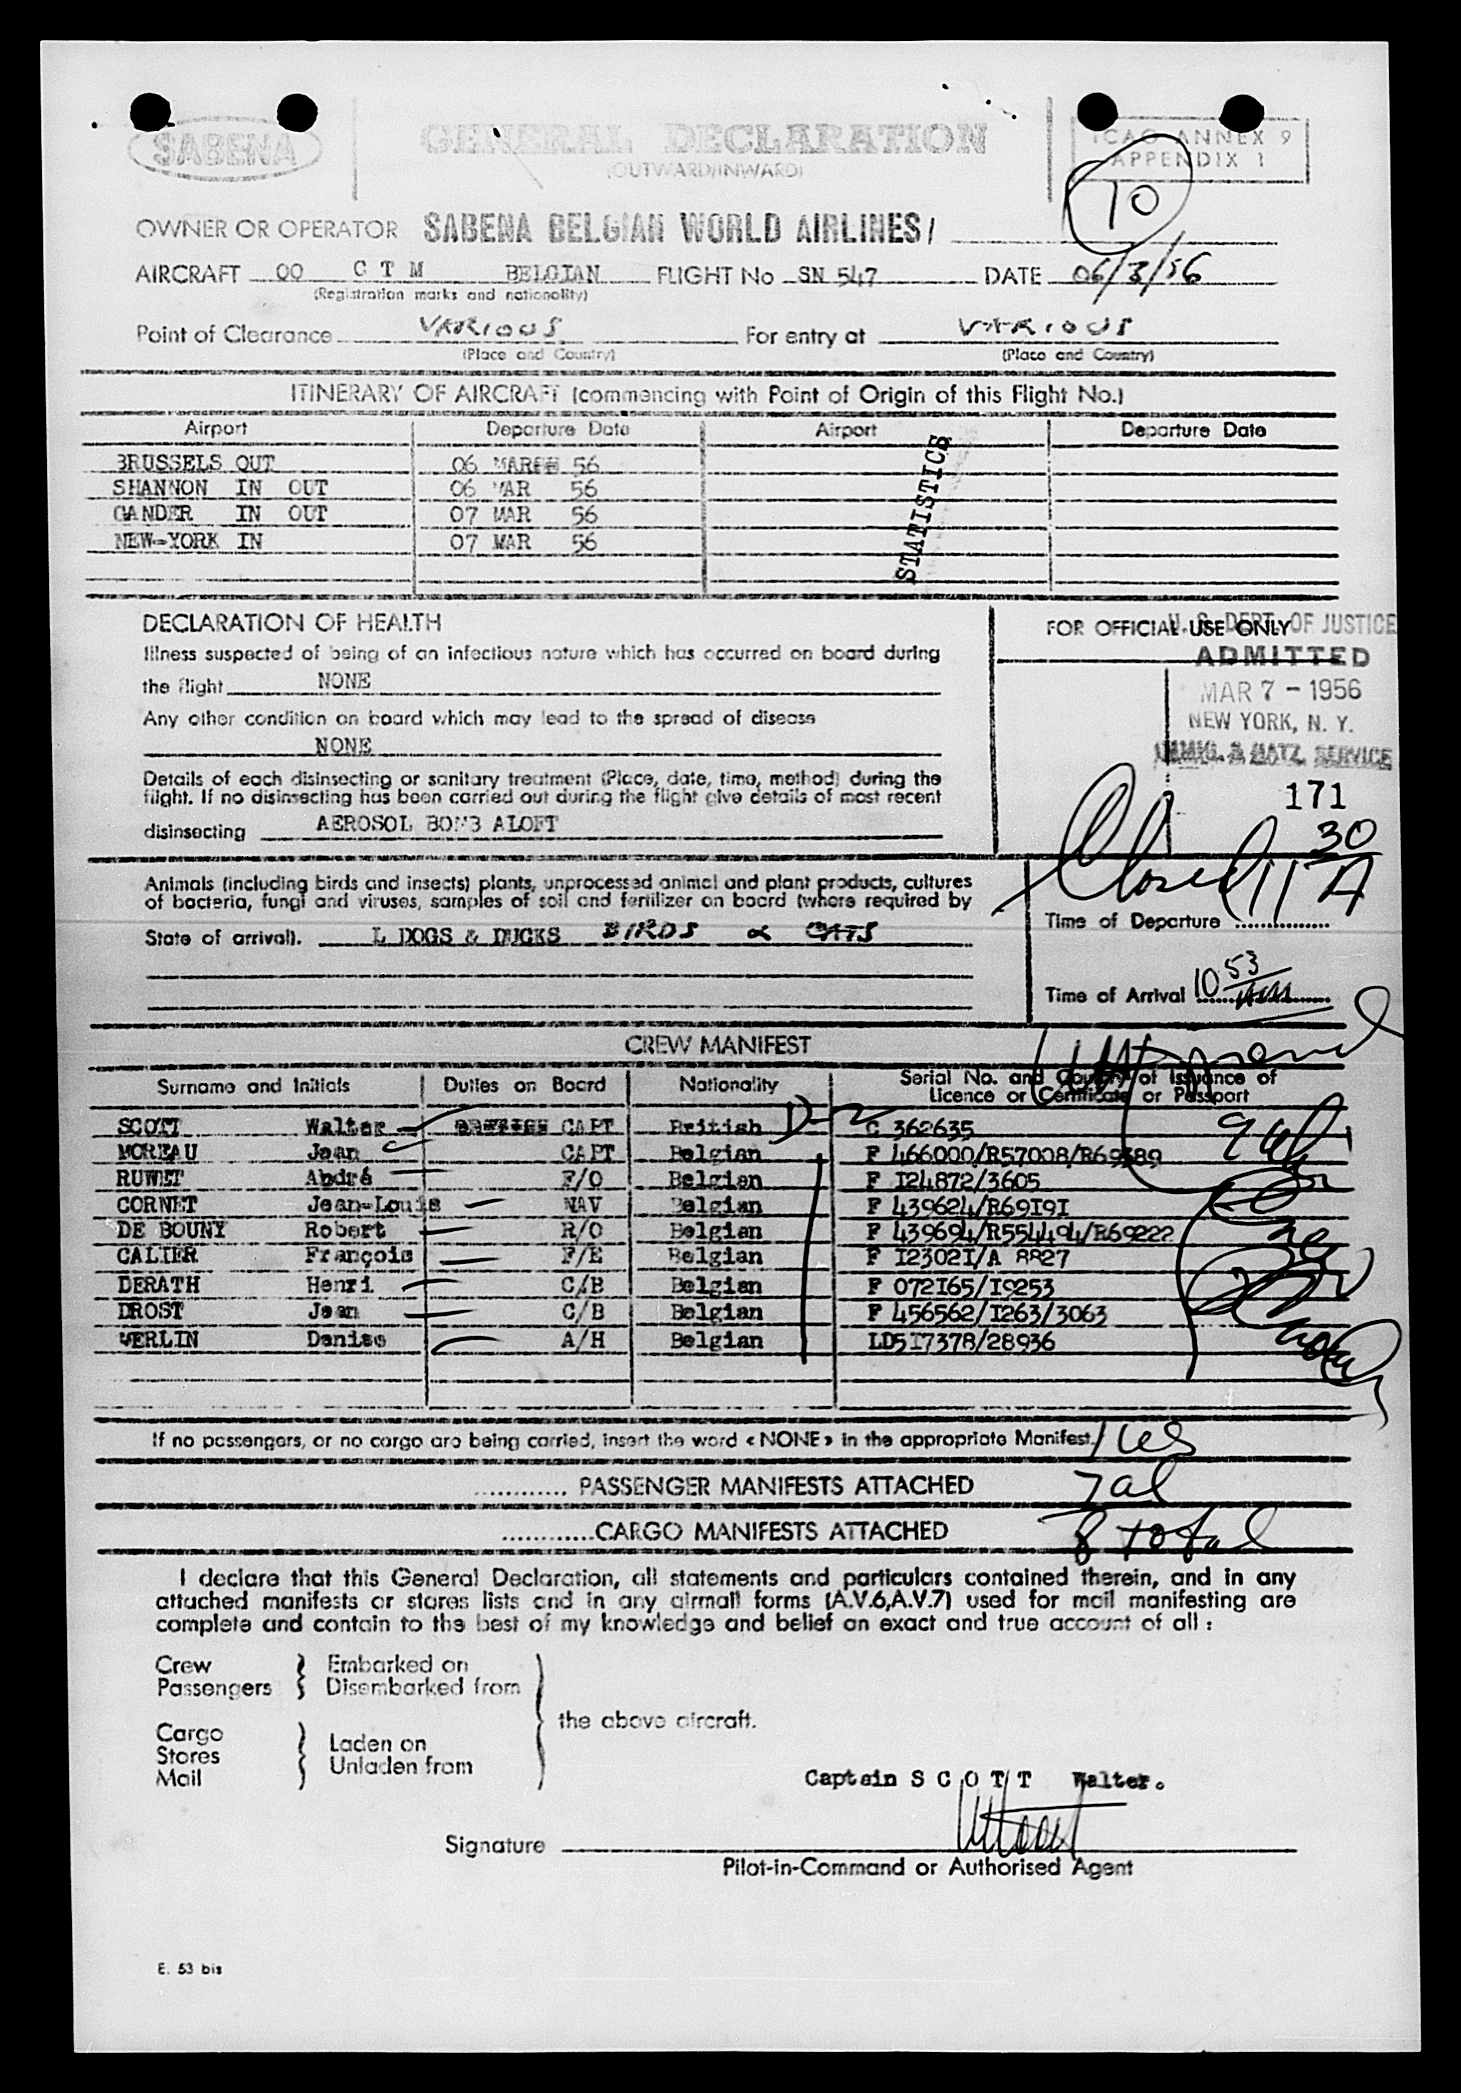 SABENA
GENERAL DECLARATION
(OUTWARD/INWARD)
ICAO ANNEX 9
APPENDIX 1
10
OWNER OR OPERATOR SABENA BELGIAN WORLD AIRLINES/
AIRCRAFT OO C T M BELGIAN FLIGHT No SN 547 DATE 06/3/56
(Registration marks and nationality)
Point of Clearance VARIOUS For entry at VARIOUS
(Place and Country) (Place and Country)
ITINERARY OF AIRCRAFT (commencing with Point of Origin of this Flight No.)
Airport Departure Date Airport Departure Date
BRUSSELS OUT 06 MARCH 56
SHANNON IN OUT 06 MAR 56
GANDER IN OUT 07 MAR 56
NEW-YORK IN 07 MAR 56
STATISTICS
DECLARATION OF HEALTH
Illness suspected of being of an infectious nature which has occurred on board during
the flight NONE
Any other condition on board which may lead to the spread of disease
NONE
Details of each disinsecting or sanitary treatment (Place, date, time, method) during the
flight. If no disinsecting has been carried out during the flight give details of most recent
disinsecting AEROSOL BOMB ALOFT
FOR OFFICIAL USE ONLY
U. S. DEPT. OF JUSTICE
ADMITTED
MAR 7 - 1956
NEW YORK, N. Y.
IMMIG. & NATZ. SERVICE
171
Closed 11 30 A
Animals (including birds and insects) plants, unprocessed animal and plant products, cultures
of bacteria, fungi and viruses, samples of soil and fertilizer on board (where required by
State of arrival). L DOGS & DUCKS BIRDS & CATS
Time of Departure
Time of Arrival 10 53
CREW MANIFEST
Surname and Initials Duties on Board Nationality Serial No. and Country of Issuance of
Licence or Certificate or Passport
SCOTT Walter CAPT British C 362635
MOREAU Jean CAPT Belgian F 466000/R57008/R69389
RUWET André F/O Belgian F I24872/3605
CORNET Jean-Louis NAV Belgian F 439624/R69I9I
DE BOUNY Robert R/O Belgian F 439694/R554494/R69222
CALIER François F/E Belgian F I2302I/A 8827
DERATH Henri C/B Belgian F 072I65/I9253
DROST Jean C/B Belgian F 456562/I263/3063
MERLIN Denise A/H Belgian LD5I7378/28936
If no passengers, or no cargo are being carried, insert the word «NONE» in the appropriate Manifest.
............ PASSENGER MANIFESTS ATTACHED
............CARGO MANIFESTS ATTACHED
8 total
I declare that this General Declaration, all statements and particulars contained therein, and in any
attached manifests or stores lists and in any airmail forms (A.V.6,A.V.7) used for mail manifesting are
complete and contain to the best of my knowledge and belief an exact and true account of all :
Crew Embarked on
Passengers Disembarked from
the above aircraft.
Cargo
Stores Laden on
Mail Unladen from
Captain S C O T T Walter.
Signature
Pilot-in-Command or Authorised Agent
E. 53 bis